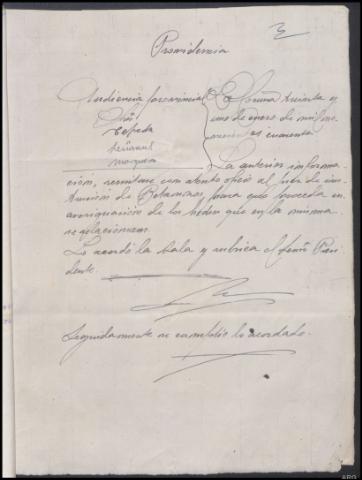 3
Providencia
Audiencia provincial
Sres.
Cepeda
La Coruña treinta y
uno de enero de mil no-
vecientos cuarenta
La anterior informa-
ción, remitase con atento oficio al Juez de ins-
trucción de Betanzos, para que proceda en
averiguación de los hechos que en la misma
se relacionan.
Lo acordó la Sala y rubrica el Señor Presi-
dente.
Seguidamente se cumplió lo acordado.
ARG